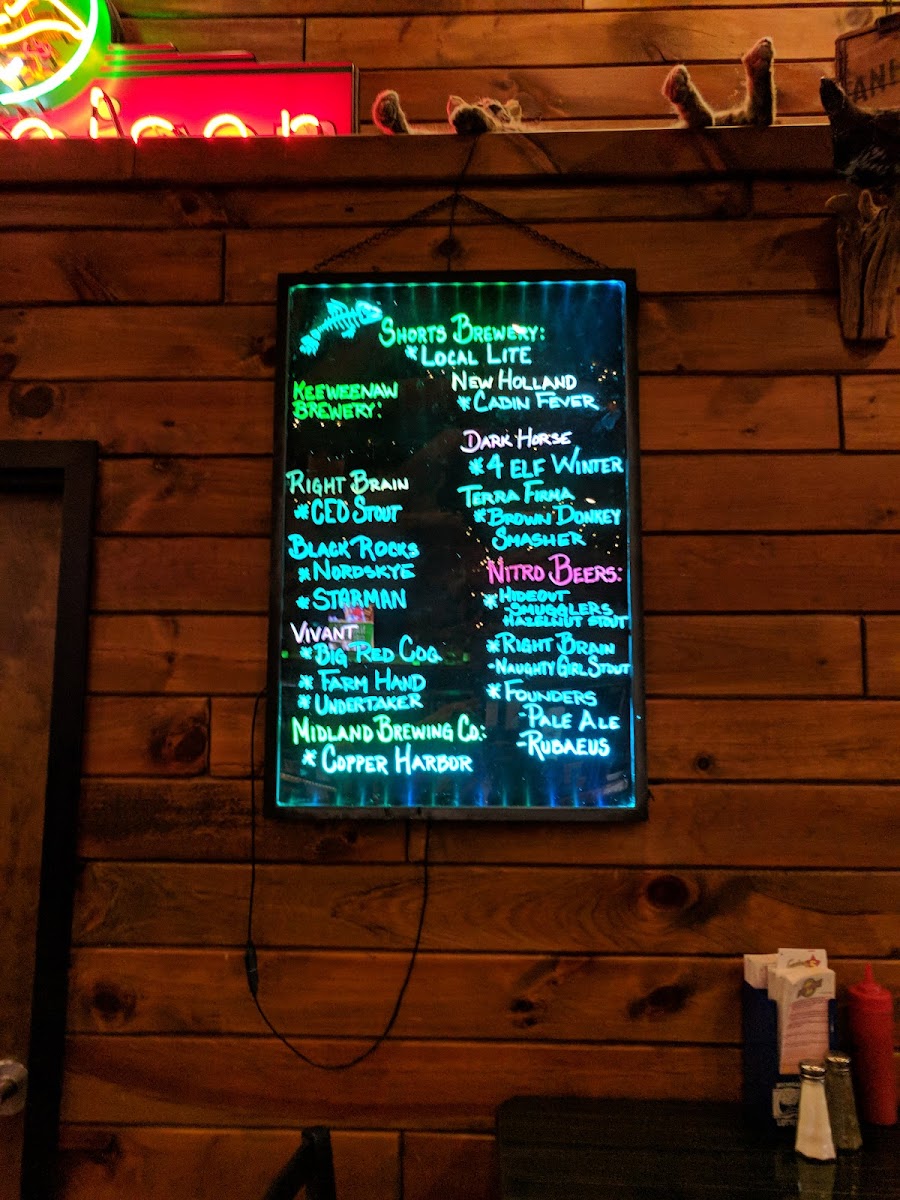 SHORTS BREWERY:
* LOCAL LITE
KEEWEENAW
BREWERY:
RIGHT BRAIN
* CEO STOUT
BLACK ROCKS
* NORDSKYE
* STARMAN
VIVANT
* BIG RED COQ
* FARM HAND
* UNDERTAKER
MIDLAND BREWING CO.:
* COPPER HARBOR
NEW HOLLAND
* CABIN FEVER
DARK HORSE
* 4 ELF WINTER
TERRA FIRMA
* BROWN DONKEY
SMASHER
NITRO BEERS:
* HIDEOUT
SMUGGLERS
HAZELNUT STOUT
* RIGHT BRAIN
- NAUGHTY GIRL STOUT
* FOUNDERS
- PALE ALE
- RUBAEUS